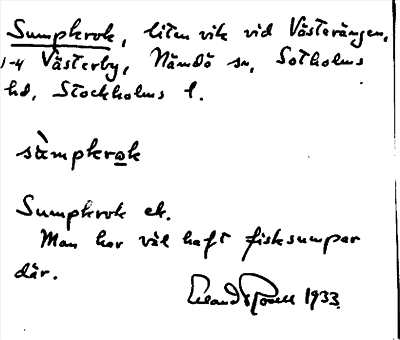 Sumpkrok, liten vik vid Västerängen,
1-4 Västerby, Nämdö sn, Sotholms
hd, Stockholms l.
sàmpkrok
Sumpkrok ek.
Man har väl haft fisksumpar
där.
Erland Rosell 1933.